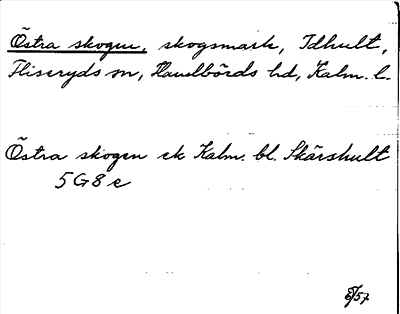 Östra skogen, skogsmark, Idhult,
Fliseryds sn, Handbörds hd, Kalm. l.
Östra skogen ek Kalm. bl. Skärshult
5G8e
/57